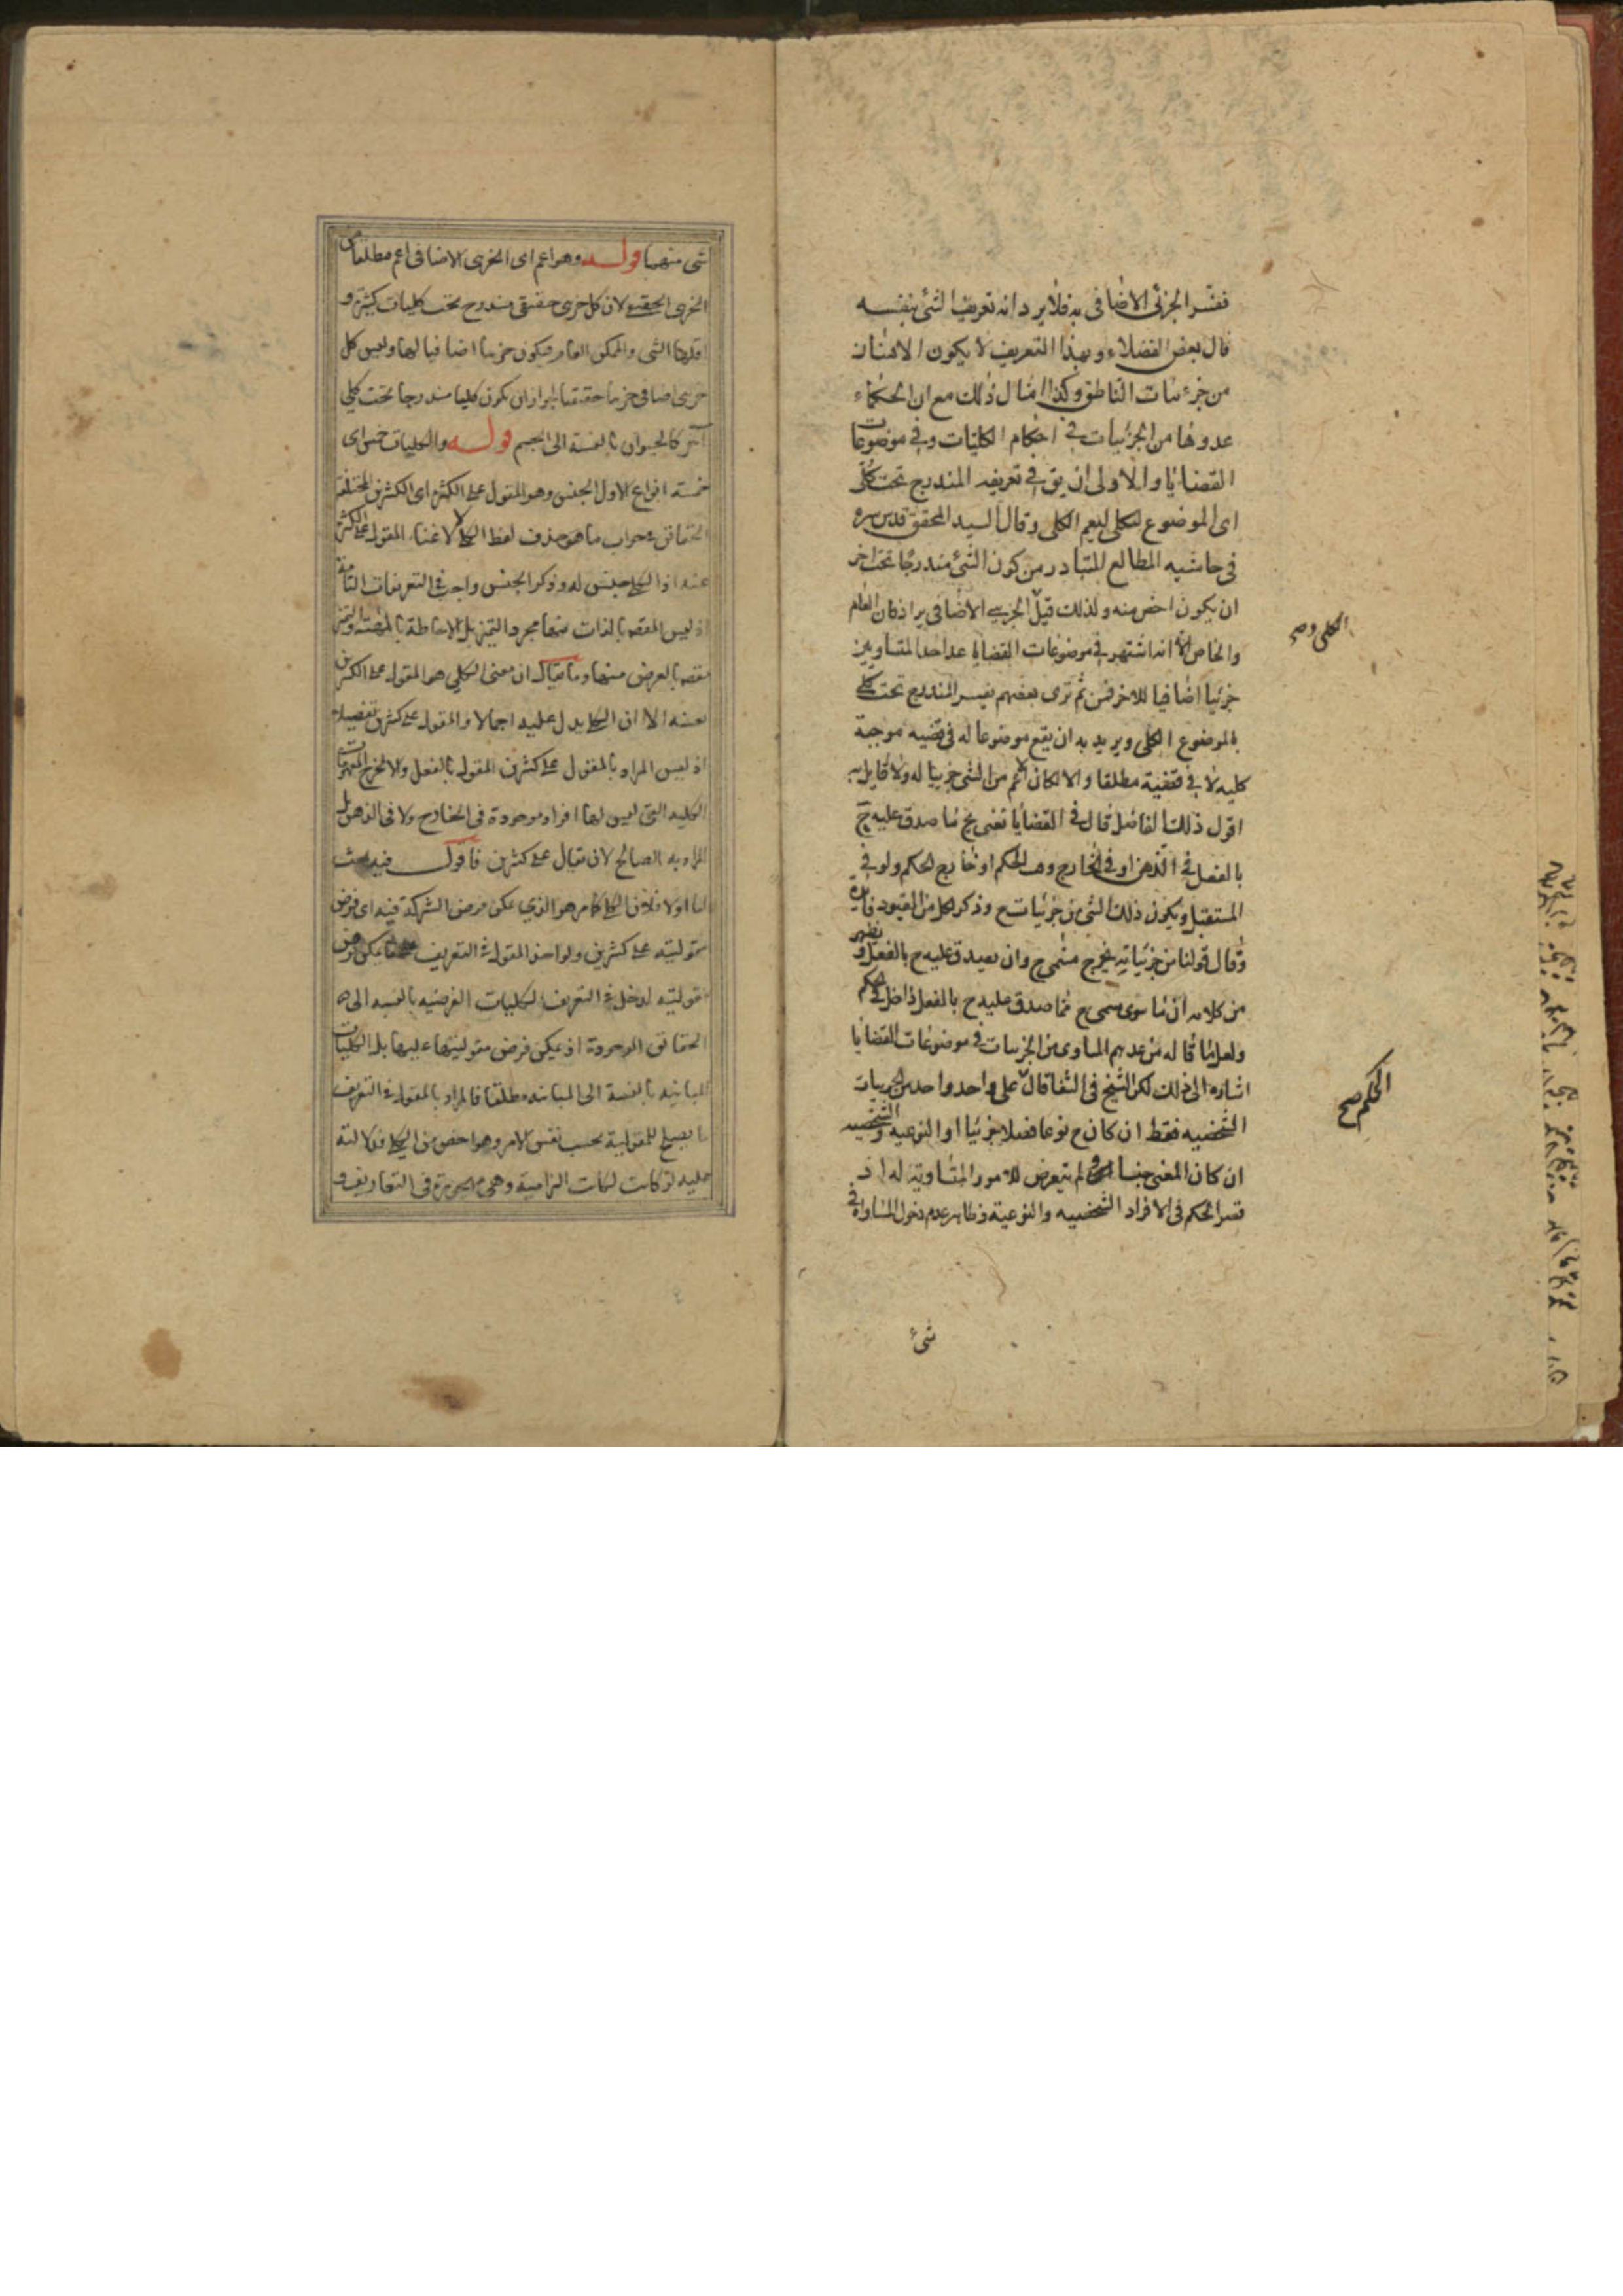 ففسّر الجزئى الاضافى به فلا يرد انه تعريف الشئ بنفسه
قال بعض الفضلاء وبهذا التعريف لا يكون الانسان
من جزءيات الناطق وكذا امثال ذلك مع ان الحكماء
عدوها من الجزئيات فى احكام الكليات وفى موضوعات
القضايا والاولى ان يق فى تعريفه المندرج تحت كلى
اى الموضوع لكلى ليعم الكلى وقال السيد المحقق قدس سره
فى حاشيه المطالع المتبادر من كون الشئ مندرجا تحت اخر
ان يكون اخص منه ولذلك قيل الجزيى الاضافى يرادفان العام
والخاص الا انه اشتهر فى موضوعات القضايا عد احد المتساويين
جزئيا اضافيا للاخر فمن ثم ترى بعضهم يفسر المندرج تحت كلى
بالموضوع الكلى ويريد به ان يقع موضوعا له فى قضيه موجبة
كليه لا فى قضية مطلقا والا لكان الاعم من الشئ جزييا له ولا قايل به
اقول ذلك الفاضل قال فى القضايا نعنى بج ما صدق عليه ج
بالفعل فى الذهن او فى الخارج وقت الحكم او خارج الحكم ولو فى
المستقبل ويكون ذلك الشئ من جزئيات ج وذكر لكل من القيود فايدة
وقال قولنا من جزئياته يخرج مسمى ج وان يصدق عليه ج بالفعل و يظهر
من كلامه ان ما سوى مسمى ج مما صدق عليه ج بالفعل داخل فى الحكم
ولعل ما قاله من عدهم المساوى من الجزييات فى موضوعات القضايا
اشاره الى ذلك لكن الشيخ فى الشفا قال على واحد واحد من الجزييات
الشخصيه فقط ان كان ج نوعا فصلا جزئيا او النوعيه والشخصيه
ان كان المعنى جنسا ولم يتعرض للامور المتساوية له اذ
قصر الحكم فى الافراد الشخصيه والنوعية وظاهر عدم دخول المساواة فى
شئ
الكلى وصح
الحكم صح
شى منهما قوله وهو اعم اى الجزيى الاضافى اعم مطلقا من
الجزيى الحقيقى لان كل جزيى حقيقى مندرج تحت كليات كثيرة و
اقلها الشى والممكن العام فيكون جزييا اضافيا لها وليس كل
جزيى اضافى جزييا حقيقيا لجواز ان يكون كليا مندرجا تحت كلى
آخر كالحيوان بالنسبة الى الجسم قوله والكليات خمس اى
خمسة انواع الاول الجنس وهو المقول على الكثرة اى الكثيرين المختلفة
الحقائق فى جواب ما هو حذف لفظ الكلى لاغناء المقول على الكثرة
عنه اذ الكلى جنس له وذكر الجنس واجب فى التعريفات التامة
اذ ليس المقصود بالذات منها مجرد التميز بل الاحاطة بالمهية والتميز
مقصود بالعرض منها وما يقال ان معنى الكلى هو المقول على الكثيرين
بعينه الا ان الكلى يدل عليه اجمالا والمقول على كثيرين تفصيلا
اذ ليس المراد بالمقول على كثيرين المقول بالفعل والا لخرج المفهومات
الكليه التى ليس لها افراد موجودة فى الخارج ولا فى الذهن بل
المراد به الصالح لان يقال على كثيرين فاقول فيه بحث
اما اولا فلان الكلى كما مر هو الذى يمكن فرض الشركة فيه اى فرض
مقوليته على كثيرين ولو اخذ المقول فى التعريف على ما يمكن فرض
مقوليته لدخل فى التعريف الكليات الفرضيه بالنسبه الى
الحقائق الموجودة اذ يمكن فرض مقوليتها عليها بل الكليات
المباينه بالنسبة الى المباينه مطلقا فالمراد بالمقول فى التعريف
ما يصلح للمقولية بحسب نفس الامر وهو اخص من الكلى فدلالته
عليه لو كانت لكانت التزامية وهى مهجورة فى التعاريف و